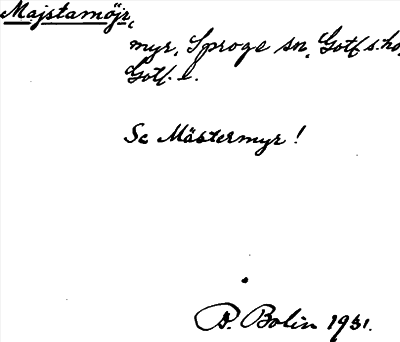 Majstamöjr,
myr, Sproge sn, Gotl s. hd,
Gotl. l.
Se Mästermyr!
B. Bolin 1931.